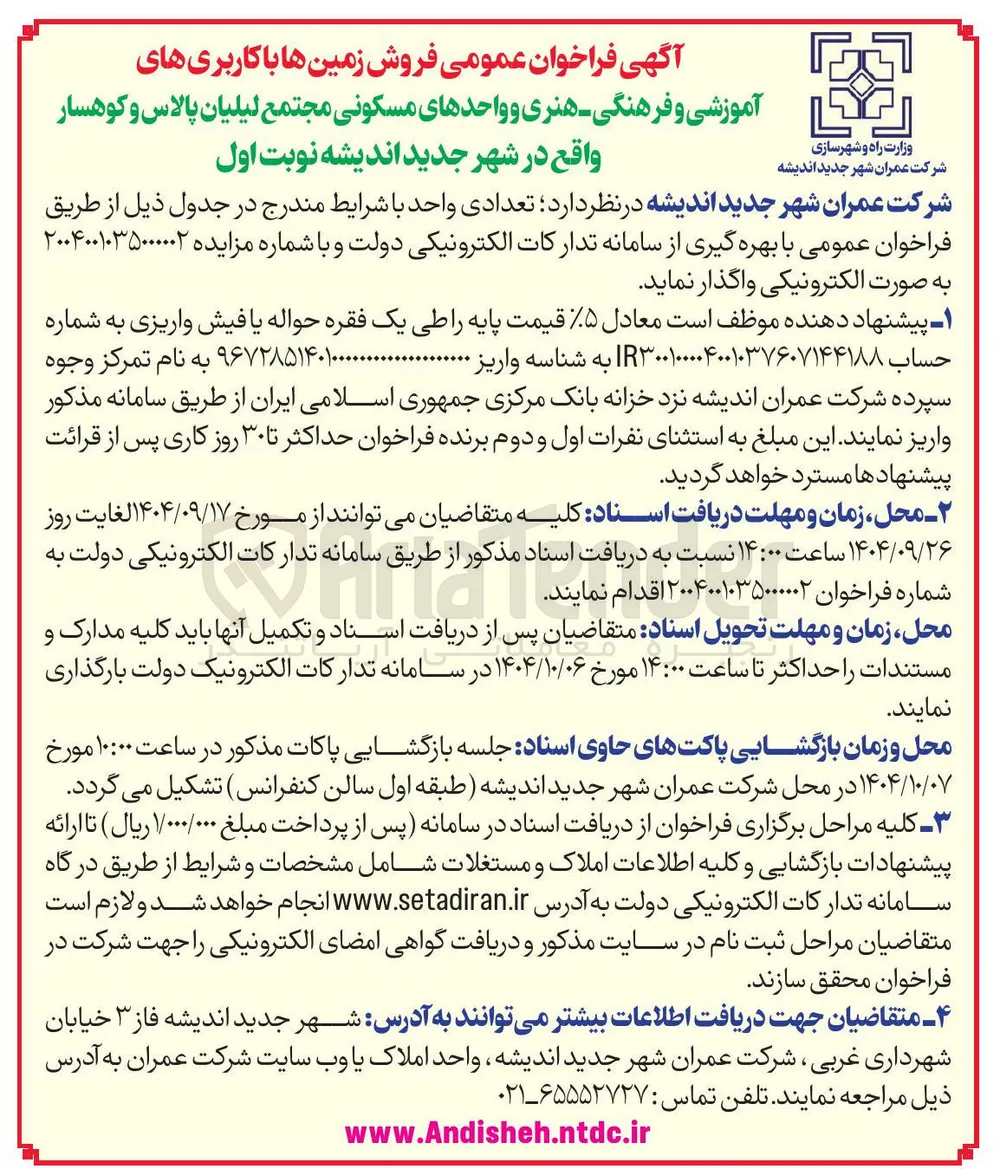 آگهی فراخوان عمومی فروش زمین ها با کاربری های
آموزشی و فرهنگی ـ هنری و واحدهای مسکونی مجتمع لیلیان پالاس و کوهسار
واقع در شهر جدید اندیشه نوبت اول
وزارت راه و شهرسازی
شرکت عمران شهر جدید اندیشه
شرکت عمران شهر جدید اندیشه درنظردارد؛ تعدادی واحد با شرایط مندرج در جدول ذیل از طریق
فراخوان عمومی با بهره گیری از سامانه تدارکات الکترونیکی دولت و با شماره مزایده ۲۰۰۴۰۰۱۰۳۵۰۰۰۰۰۲
به صورت الکترونیکی واگذار نماید.
۱ـ پیشنهاد دهنده موظف است معادل ۵٪ قیمت پایه را طی یک فقره حواله یا فیش واریزی به شماره
حساب IR۳۰۰۱۰۰۰۰۴۰۰۱۰۳۷۶۰۷۱۴۴۱۸۸ به شناسه واریز به نام تمرکز وجوه
سپرده شرکت عمران اندیشه نزد خزانه بانک مرکزی جمهوری اسلامی ایران از طریق سامانه مذکور
واریز نمایند. این مبلغ به استثنای نفرات اول و دوم برنده فراخوان حداکثر تا ۳۰ روز کاری پس از قرائت
پیشنهادها مسترد خواهد گردید.
۲ـ محل، زمان و مهلت دریافت اسناد: کلیه متقاضیان می توانند از مورخ ۱۴۰۴/۰۹/۱۷ لغایت روز
۱۴۰۴/۰۹/۲۶ ساعت ۱۴:۰۰ نسبت به دریافت اسناد مذکور از طریق سامانه تدارکات الکترونیکی دولت به
شماره فراخوان ۲۰۰۴۰۰۱۰۳۵۰۰۰۰۰۲ اقدام نمایند.
محل، زمان و مهلت تحویل اسناد: متقاضیان پس از دریافت اسناد و تکمیل آنها باید کلیه مدارک و
مستندات را حداکثر تا ساعت ۱۴:۰۰ مورخ ۱۴۰۴/۱۰/۰۶ در سامانه تدارکات الکترونیک دولت بارگذاری
نمایند.
محل و زمان بازگشایی پاکت های حاوی اسناد: جلسه بازگشایی پاکات مذکور در ساعت ۱۰:۰۰ مورخ
۱۴۰۴/۱۰/۰۷ در محل شرکت عمران شهر جدید اندیشه (طبقه اول سالن کنفرانس) تشکیل می گردد.
۳ـ کلیه مراحل برگزاری فراخوان از دریافت اسناد در سامانه (پس از پرداخت مبلغ ۱/۰۰۰/۰۰۰ ریال) تا ارائه
پیشنهادات بازگشایی و کلیه اطلاعات املاک و مستغلات شامل مشخصات و شرایط از طریق درگاه
سامانه تدارکات الکترونیکی دولت به آدرس www.setadiran.ir انجام خواهد شد و لازم است
متقاضیان مراحل ثبت نام در سایت مذکور و دریافت گواهی امضای الکترونیکی را جهت شرکت در
فراخوان محقق سازند.
۴ـ متقاضیان جهت دریافت اطلاعات بیشتر می توانند به آدرس: شهر جدید اندیشه فاز ۳ خیابان
شهرداری غربی، شرکت عمران شهر جدید اندیشه، واحد املاک یا وب سایت شرکت عمران به آدرس
ذیل مراجعه نمایند. تلفن تماس: ۶۵۵۵۲۷۲۷ـ۰۲۱
www.Andisheh.ntdc.ir
AriaTender